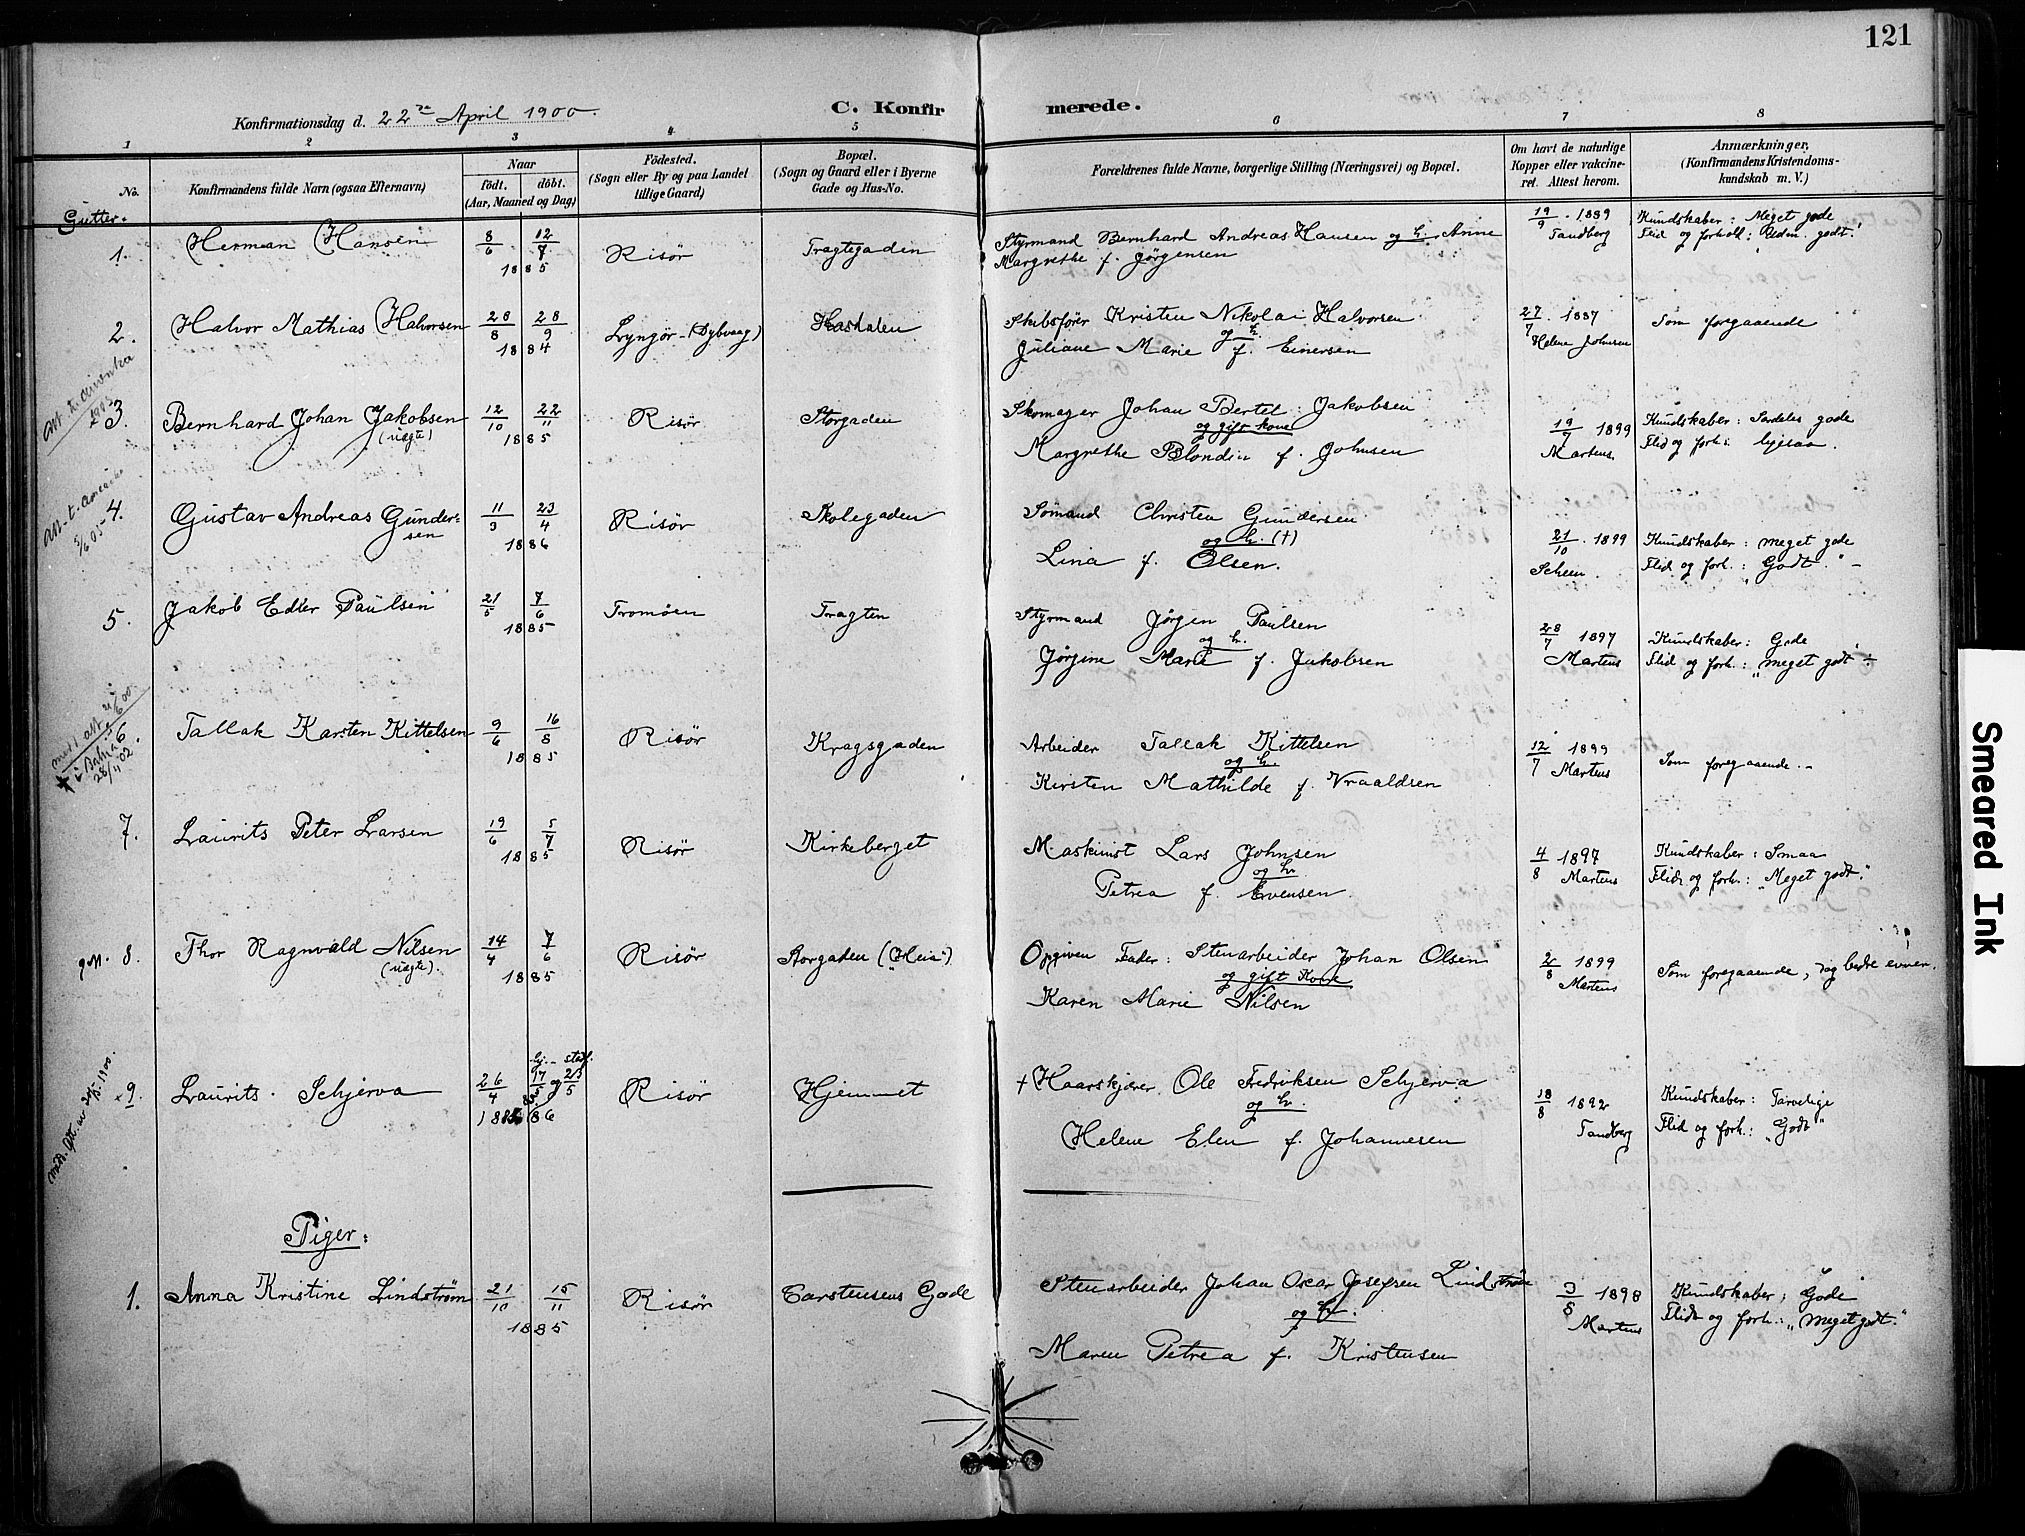 121
C. Konfirmerede.
Konfirmationsdag d. 22de April 1900.
1 2 3 4 5 6 7 8
No.
Konfirmandens fulde Navn (ogsaa Efternavn)
Naar
födt. döbt.
(Aar, Maaned og Dag)
Födested.
(Sogn eller By og paa Landet
tillige Gaard)
Bopæl.
(Sogn og Gaard eller i Byerne
Gade og Hus-No.
Forældrenes fulde Navne, borgerlige Stilling (Næringsvei) og Bopæl.
Om havt de naturlige
Kopper eller vakcine-
ret. Attest herom.
Anmærkninger,
(Konfirmandens Kristendoms-
kundskab m. V.)
Gutter.
1. Herman Hansen 8/6 12/7 1885 Risör Tragtegaden
Styrmand Bernhard Andreas Hansen og h. Anne
Margrethe f. Jörgensen
19/9 1889 Tandberg
Kundskaber: Meget gode
Flid og forhold: godt.
2. Halvor Mathias Halvorsen 28/8 28/9 1884 Lyngör (Dybvaag)
Skibsförer Kristen Nikolai Halvorsen
og h.
Juliane Marie f. Einersen
27/7 1887 Helene Johnsen
Som foregaaende
3. Bernhard Johan Jakobsen (uægte) 12/10 22/11 1885 Risör Storgaden
Skomager Johan Bertel Jakobsen
og gift kone
Margrethe Blondin f. Johnsen
19/7 1899 Martens.
Kundskaber: Særdeles gode
Flid og forh: ligesaa.
4. Gustav Andreas Gundersen 11/3 23/4 1886 Risör Skolegaden
Att. t. Amerika
Sömand Christen Gundersen
og h. (†)
Lina f. Olsen.
21/10 1899 Scheen.
Kundskaber: meget gode
Flid og forh.: "Godt."
5. Jakob Edler Paulsen 21/5 7/6 1885 Tromöen Tragten
Styrmand Jörgen Paulsen
og h.
Jörgine Marie f. Jakobsen
28/7 1897 Martens
Kundskaber: Gode
Flid og forh.: "meget godt"
6. Tallak Karsten Kittelsen 9/6 16/8 1885 Risör Kragsgaden
† i Bahia
28/4 02
Arbeider Tallak Kittelsen
og h.
Kirsten Mathilde f. Vraaldsen
12/7 1899 Martens
Som foregaaende.
7. Laurits Peter Larsen 19/6 5/7 1885 Risör Kirkeberget
Maskinist Lars Johnsen
og h.
Petrea f. Evensen.
4/8 1897 Martens
Kundskaber: Smaa
Flid og forh.: "Meget godt."
8. Thor Ragnvald Nilsen (uægte). 14/4 7/6 1885 Risör Storgaden ("Heia")
Opgiven Fader: Stenarbeider Johan Olsen
og gift Kone
Karen Marie Nilsen
2/8 1899 Martens
Som foregaaende, dog bedre evner.
9. Laurits Schjerva 26/4 17/5 og 23/5 1886 Risör Hjemmet
† Haarskjærer Ole Fredriksen Schjerva
og h.
Helene Elen f. Johannesen
18/8 1892 Tandberg
Kundskaber: Tarvelige
Flid og forh.: "Godt"
Piger:
1. Anna Kristine Lindström 21/10 15/11 1885 Risör Carstensens Gade
Stenarbeider Johan Oscar Josefsen Lindström
og h.
Maren Petrea f. Kristensen
3/8 1898 Martens
Kundskaber: Gode
Flid og forh.: "Meget godt."
Smeared Ink